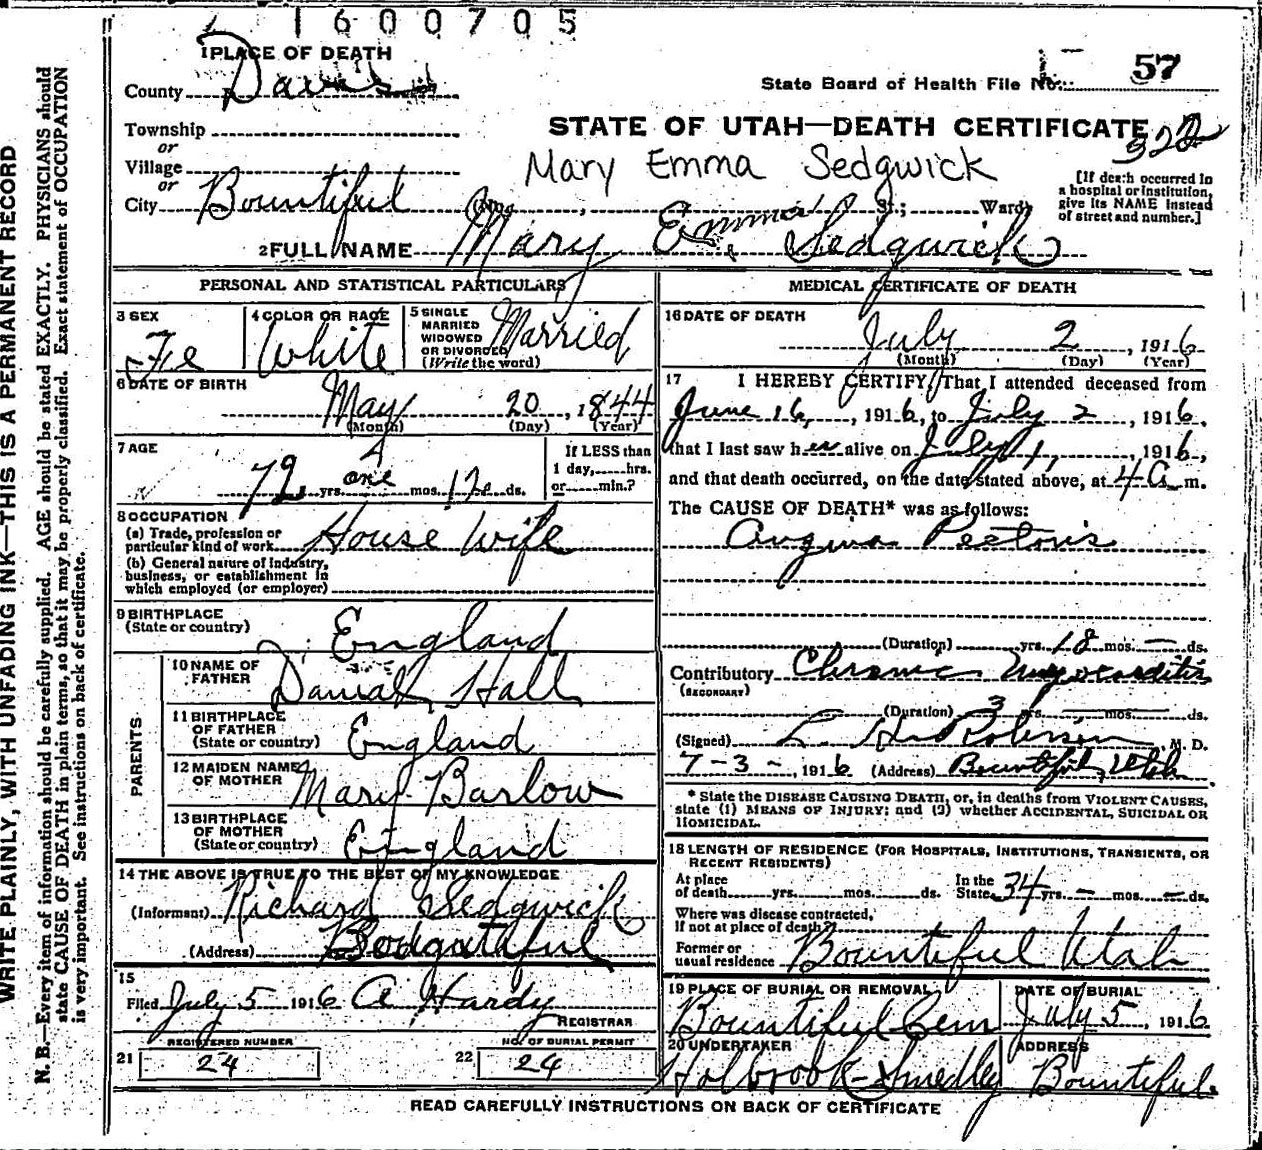 1600705
1 PLACE OF DEATH
County Davis
State Board of Health File No. 57
Township
or
Village
or
City Bountiful
STATE OF UTAH—DEATH CERTIFICATE
322
Mary Emma Sedgwick
St.; Ward)
[If death occurred in
a hospital or institution,
give its NAME instead
of street and number.]
2 FULL NAME Mary Emma Sedgwick
PERSONAL AND STATISTICAL PARTICULARS
3 SEX
Fe
4 COLOR OR RACE
White
5 SINGLE
MARRIED
WIDOWED
OR DIVORCED
(Write the word)
Married
6 DATE OF BIRTH
May 20, 1844
(Month) (Day) (Year)
7 AGE
72 yrs. one mos. 12 ds.
If LESS than
1 day, hrs.
or min.?
8 OCCUPATION
(a) Trade, profession or
particular kind of work House Wife
(b) General nature of Industry,
business, or establishment in
which employed (or employer)
9 BIRTHPLACE
(State or country) England
PARENTS
10 NAME OF
FATHER Daniel Hall
11 BIRTHPLACE
OF FATHER
(State or country) England
12 MAIDEN NAME
OF MOTHER Mary Barlow
13 BIRTHPLACE
OF MOTHER
(State or country) England
14 THE ABOVE IS TRUE TO THE BEST OF MY KNOWLEDGE
(Informant) Richard Sedgwick
(Address)
15
Filed July 5 1916 A Hardy
REGISTRAR
21 REGISTERED NUMBER
24
22 NO. OF BURIAL PERMIT
24
MEDICAL CERTIFICATE OF DEATH
16 DATE OF DEATH
July 2, 1916
(Month) (Day) (Year)
17 I HEREBY CERTIFY, That I attended deceased from
June 16, 1916, to July 2, 1916,
that I last saw her alive on July 1, 1916,
and that death occurred, on the date stated above, at 4 A m.
The CAUSE OF DEATH* was as follows:
Angina Pectoris
(Duration) yrs. 18 mos. — ds.
Contributory Chronic Myocarditis
(SECONDARY)
(Duration) 3 yrs. — mos. — ds.
(Signed) Robinson M. D.
7-3-, 1916 (Address) Bountiful, Utah
* State the DISEASE CAUSING DEATH, or, in deaths from VIOLENT CAUSES,
state (1) MEANS OF INJURY; and (2) whether ACCIDENTAL, SUICIDAL OR
HOMICIDAL.
18 LENGTH OF RESIDENCE (FOR HOSPITALS, INSTITUTIONS, TRANSIENTS, OR
RECENT RESIDENTS)
At place
of death yrs. mos. ds. In the
State 34 yrs. — mos. — ds.
Where was disease contracted,
if not at place of death?
Former or
usual residence Bountiful Utah
19 PLACE OF BURIAL OR REMOVAL
Bountiful Cem
DATE OF BURIAL
July 5, 1916
20 UNDERTAKER
Holbrook-Smedley
ADDRESS
Bountiful
READ CAREFULLY INSTRUCTIONS ON BACK OF CERTIFICATE
WRITE PLAINLY, WITH UNFADING INK—THIS IS A PERMANENT RECORD
N. B.—Every item of information should be carefully supplied. AGE should be stated EXACTLY. PHYSICIANS should
state CAUSE OF DEATH in plain terms, so that it may be properly classified. Exact statement of OCCUPATION
is very important. See instructions on back of certificate.